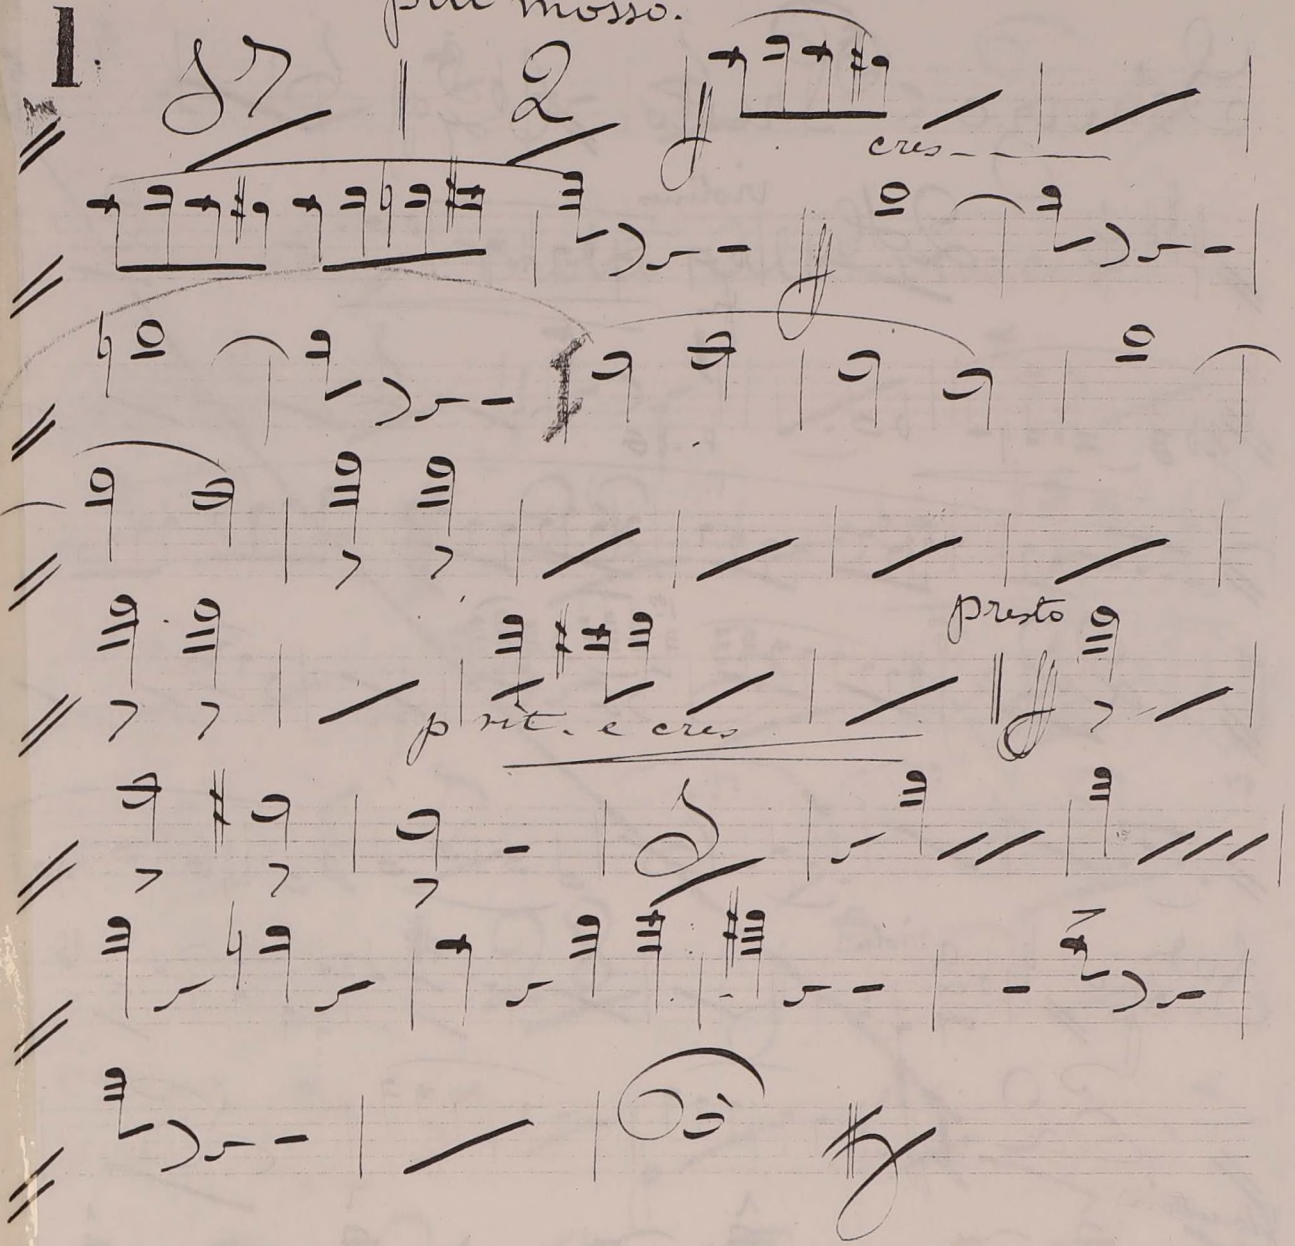 più mosso.
1. 37 2
cres
presto
p rit. e cres